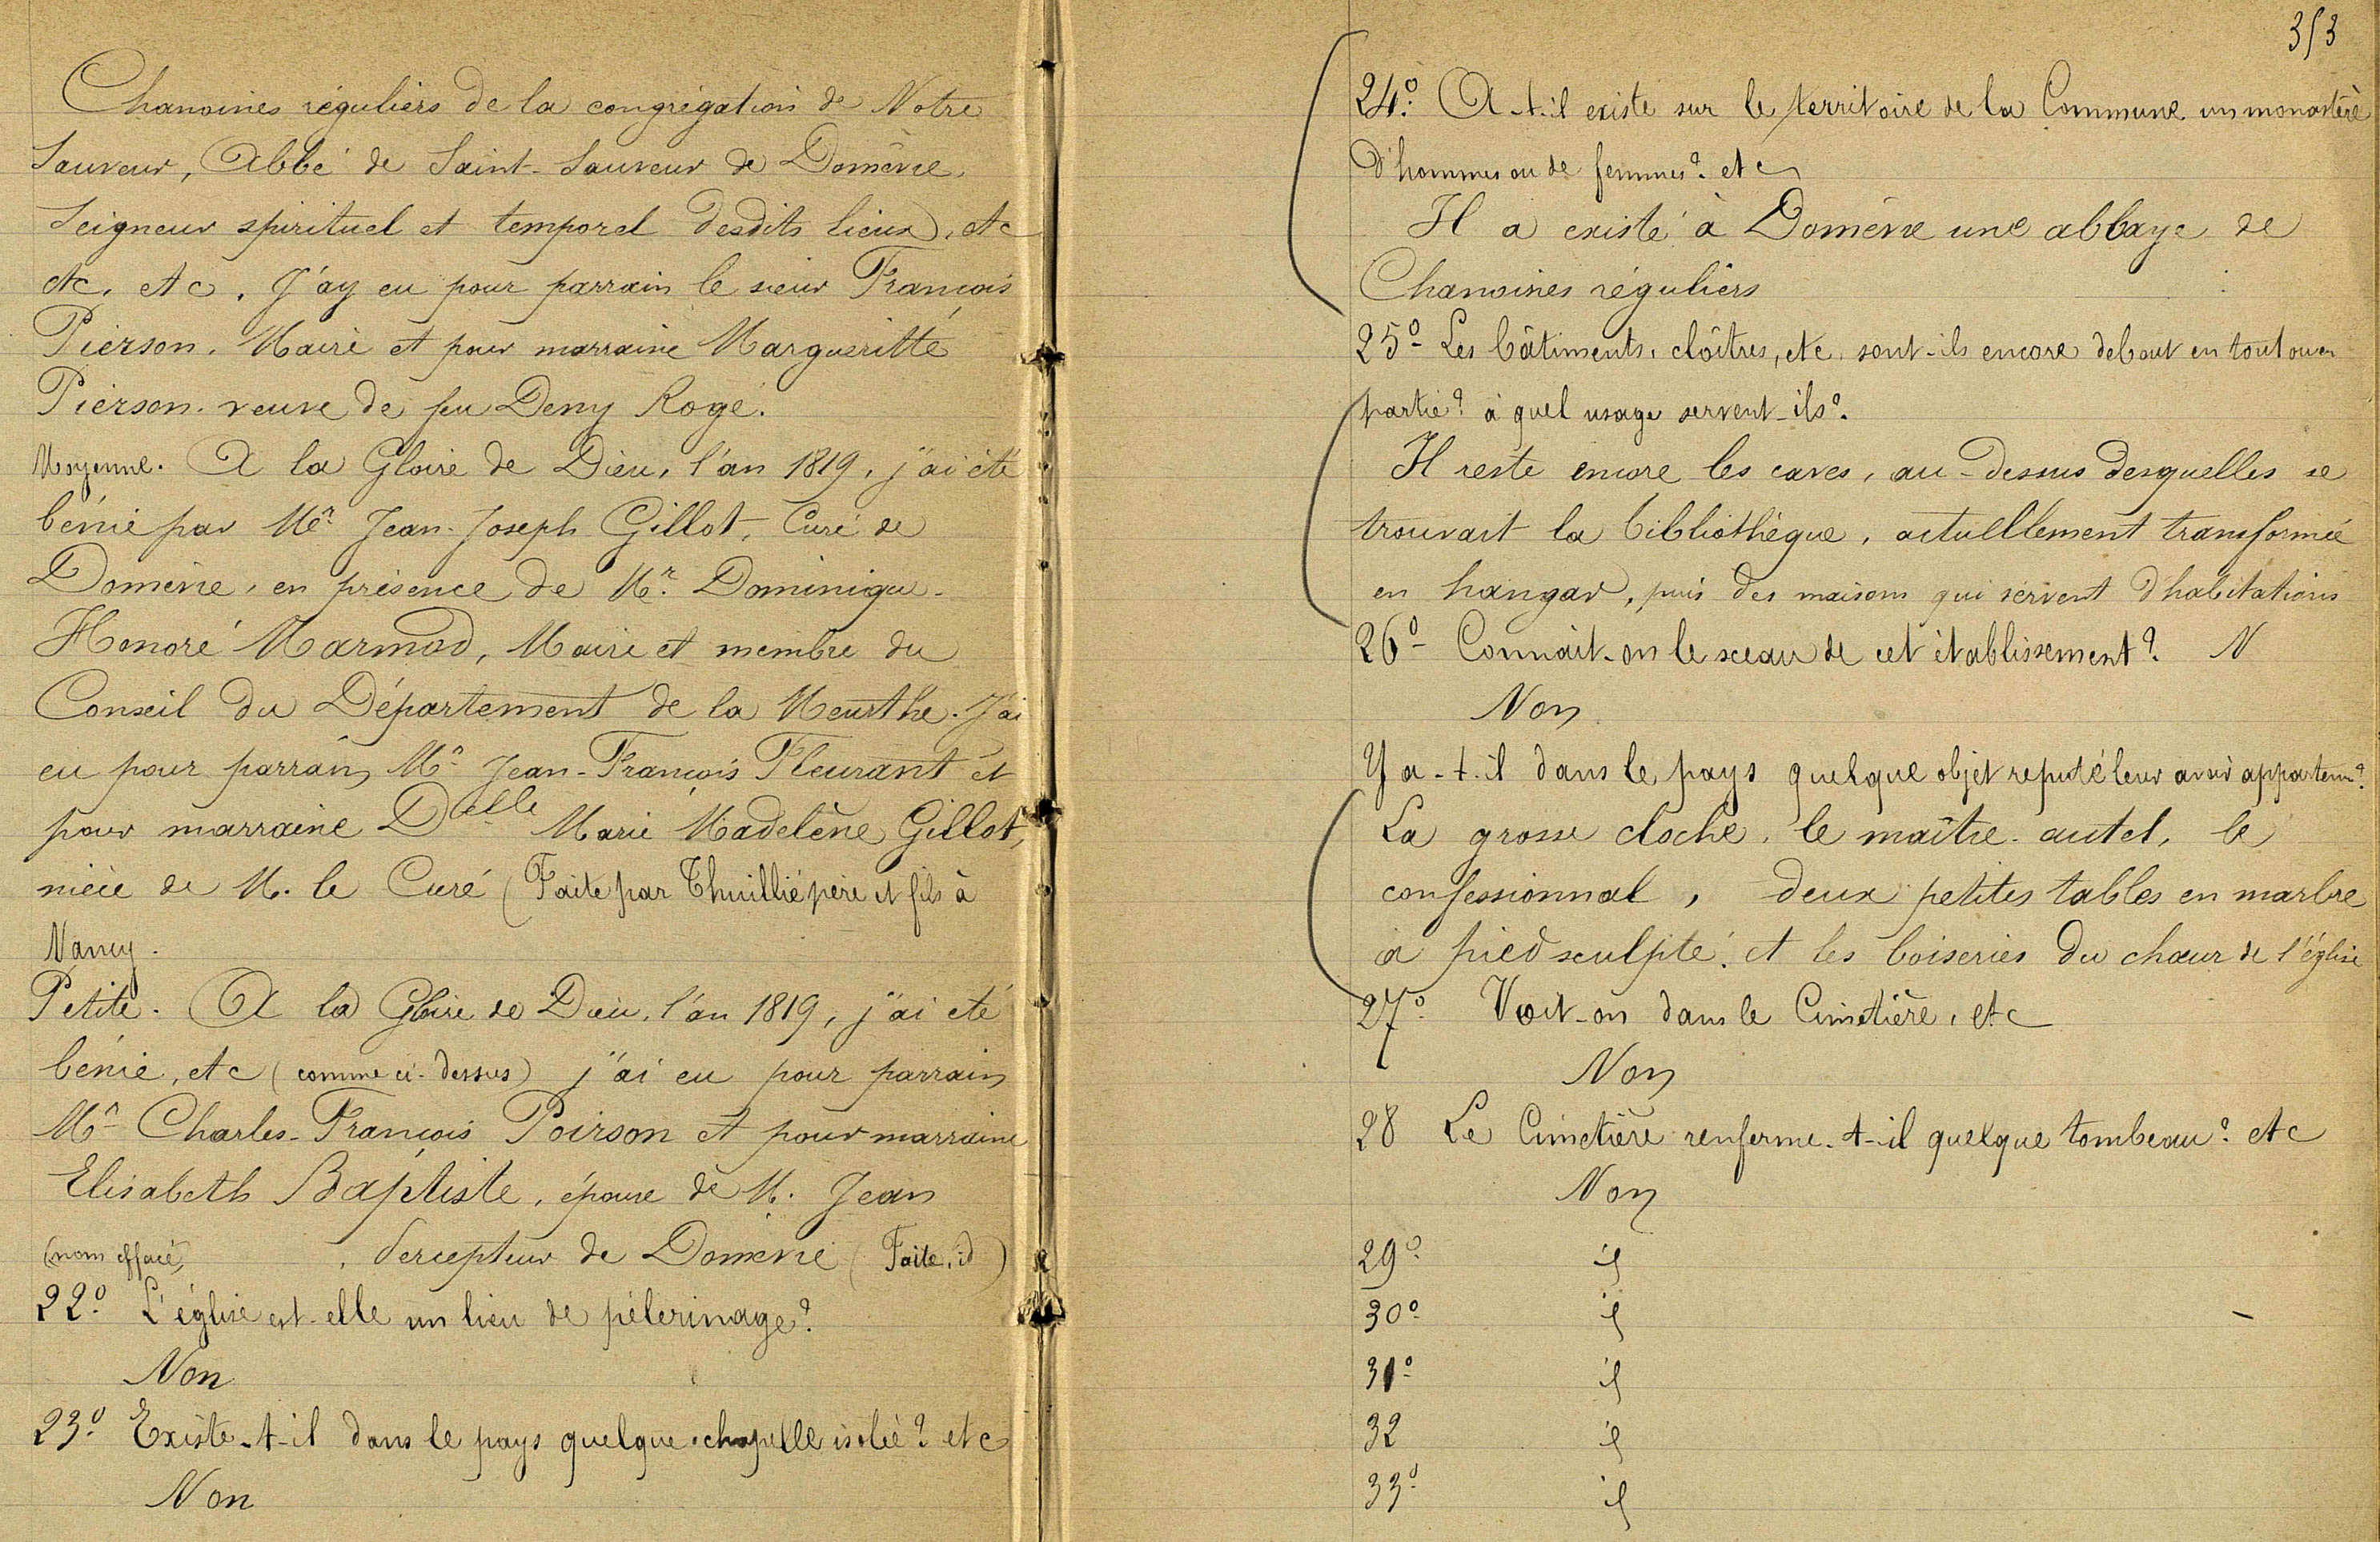 Chanoines réguliers de la congrégation de Notre
Sauveur, Abbé de Saint-Sauveur de Domèvre,
Seigneur spirituel et temporel desdits lieux, etc
etc, etc, J'ay eu pour parrain le sieur François
Pierson, Maire et pour marraine Margueritte
Pierson, veuve de feu Deny Rogé.
Moyenne. A la Gloire de Dieu, l'an 1819, j'ai été
bénie par Mr Jean-Joseph Gillot, Curé de
Domèvre, en présence de Mr. Dominique-
Honoré Marmod, Maire et membre du
Conseil du Département de la Meurthe. J'ai
eu pour parrain Mr Jean-François Fleurant et
pour marraine Delle Marie Madelène Gillot,
nièce de M. le Curé (Faite par Thuillié père et fils à
Nancy.
Petite. A la Gloire de Dieu, l'an 1819, j'ai été
bénie, etc (comme ci-dessus) j'ai eu pour parrain
Mr Charles-François Poirson et pour marraine
Elisabeth Baptiste, épouse de M. Jean
(nom effacé) , Percepteur de Domèvre (Faite, id)
22° L'église est-elle un lieu de pélerinage?
Non
23° Existe-t-il dans le pays quelque chapelle isolée? etc
Non
353
24° A-t-il existe sur le territoire de la Commune un monastère
d'hommes ou de femmes? etc
Il a existé à Domèvre une abbaye de
Chanoines réguliers
25° Les bâtiments, cloîtres, etc, sont-ils encore debout en tout ou en
partie? à quel usage servent-ils?
Il reste encore les caves, au-dessus desquelles se
trouvait la bibliothèque, actuelllement transformée
en hangar, puis des maisons qui servent d'habitations
26° Connait-on le sceau de cet établissement? N
Non
Y a-t-il dans le pays quelque objet reputé leur avoir apparten?
La grosse cloche, le maître-autel, le
confessionnal, deux petites tables en marbre
à pied sculpté, et les boiseries du chœur de l'église
27° Voit-on dans le Cimetière, etc
Non
28 Le Cimetière renferme-t-il quelque tombeau? etc
Non
29°
30°
31°
32
33°